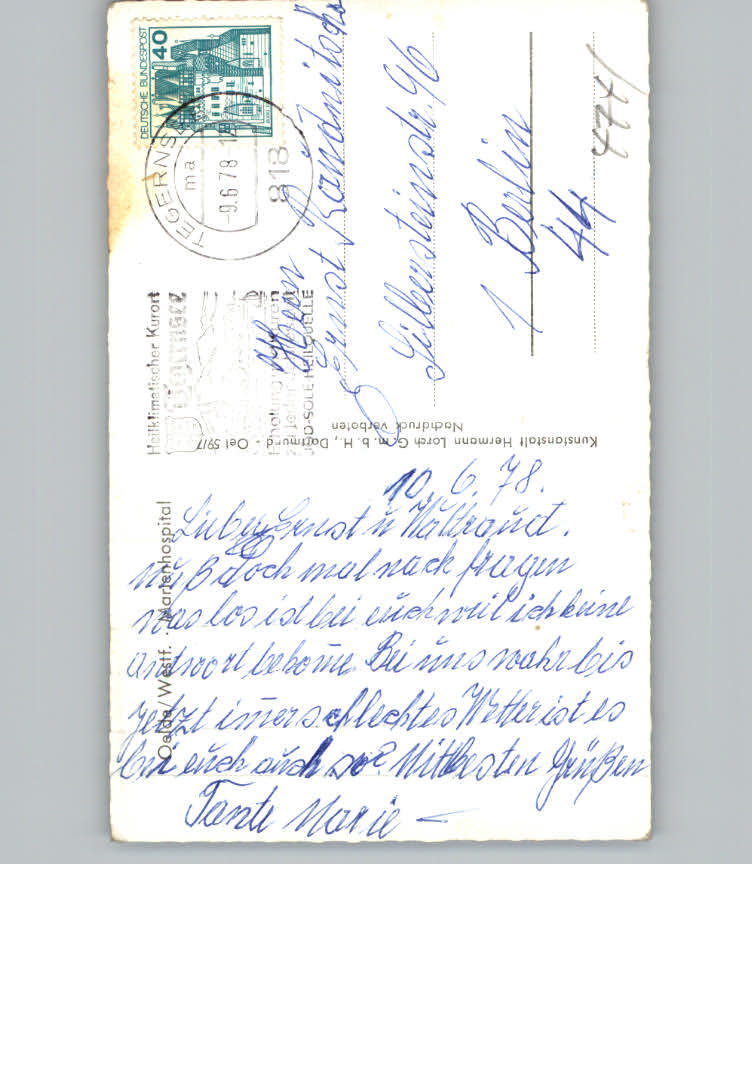 DEUTSCHE BUNDESPOST
40
TEGERNSEE
ma
-9.6.78
818
Heilklimatischer Kurort
Tegernsee
JOD-SOLE-HEILQUELLE
Herrn
Ernst
Silbersteinstr. 96
1 Berlin
44
Kunstanstalt Hermann Lorch G.m.b.H., Dortmund - Oel 59/7
Nachdruck verboten
Oelde/Westf. Marienhospital
10.6.78.
Lieber Ernst u Waltraud.
muß doch mal nach fragen
was los ist bei euch weil ich keine
Antwort bekome. Bei uns wahr bis
jetzt imer schlechtes Wetter ist es
bei euch auch so? Mit besten Grüßen
Tante Marie